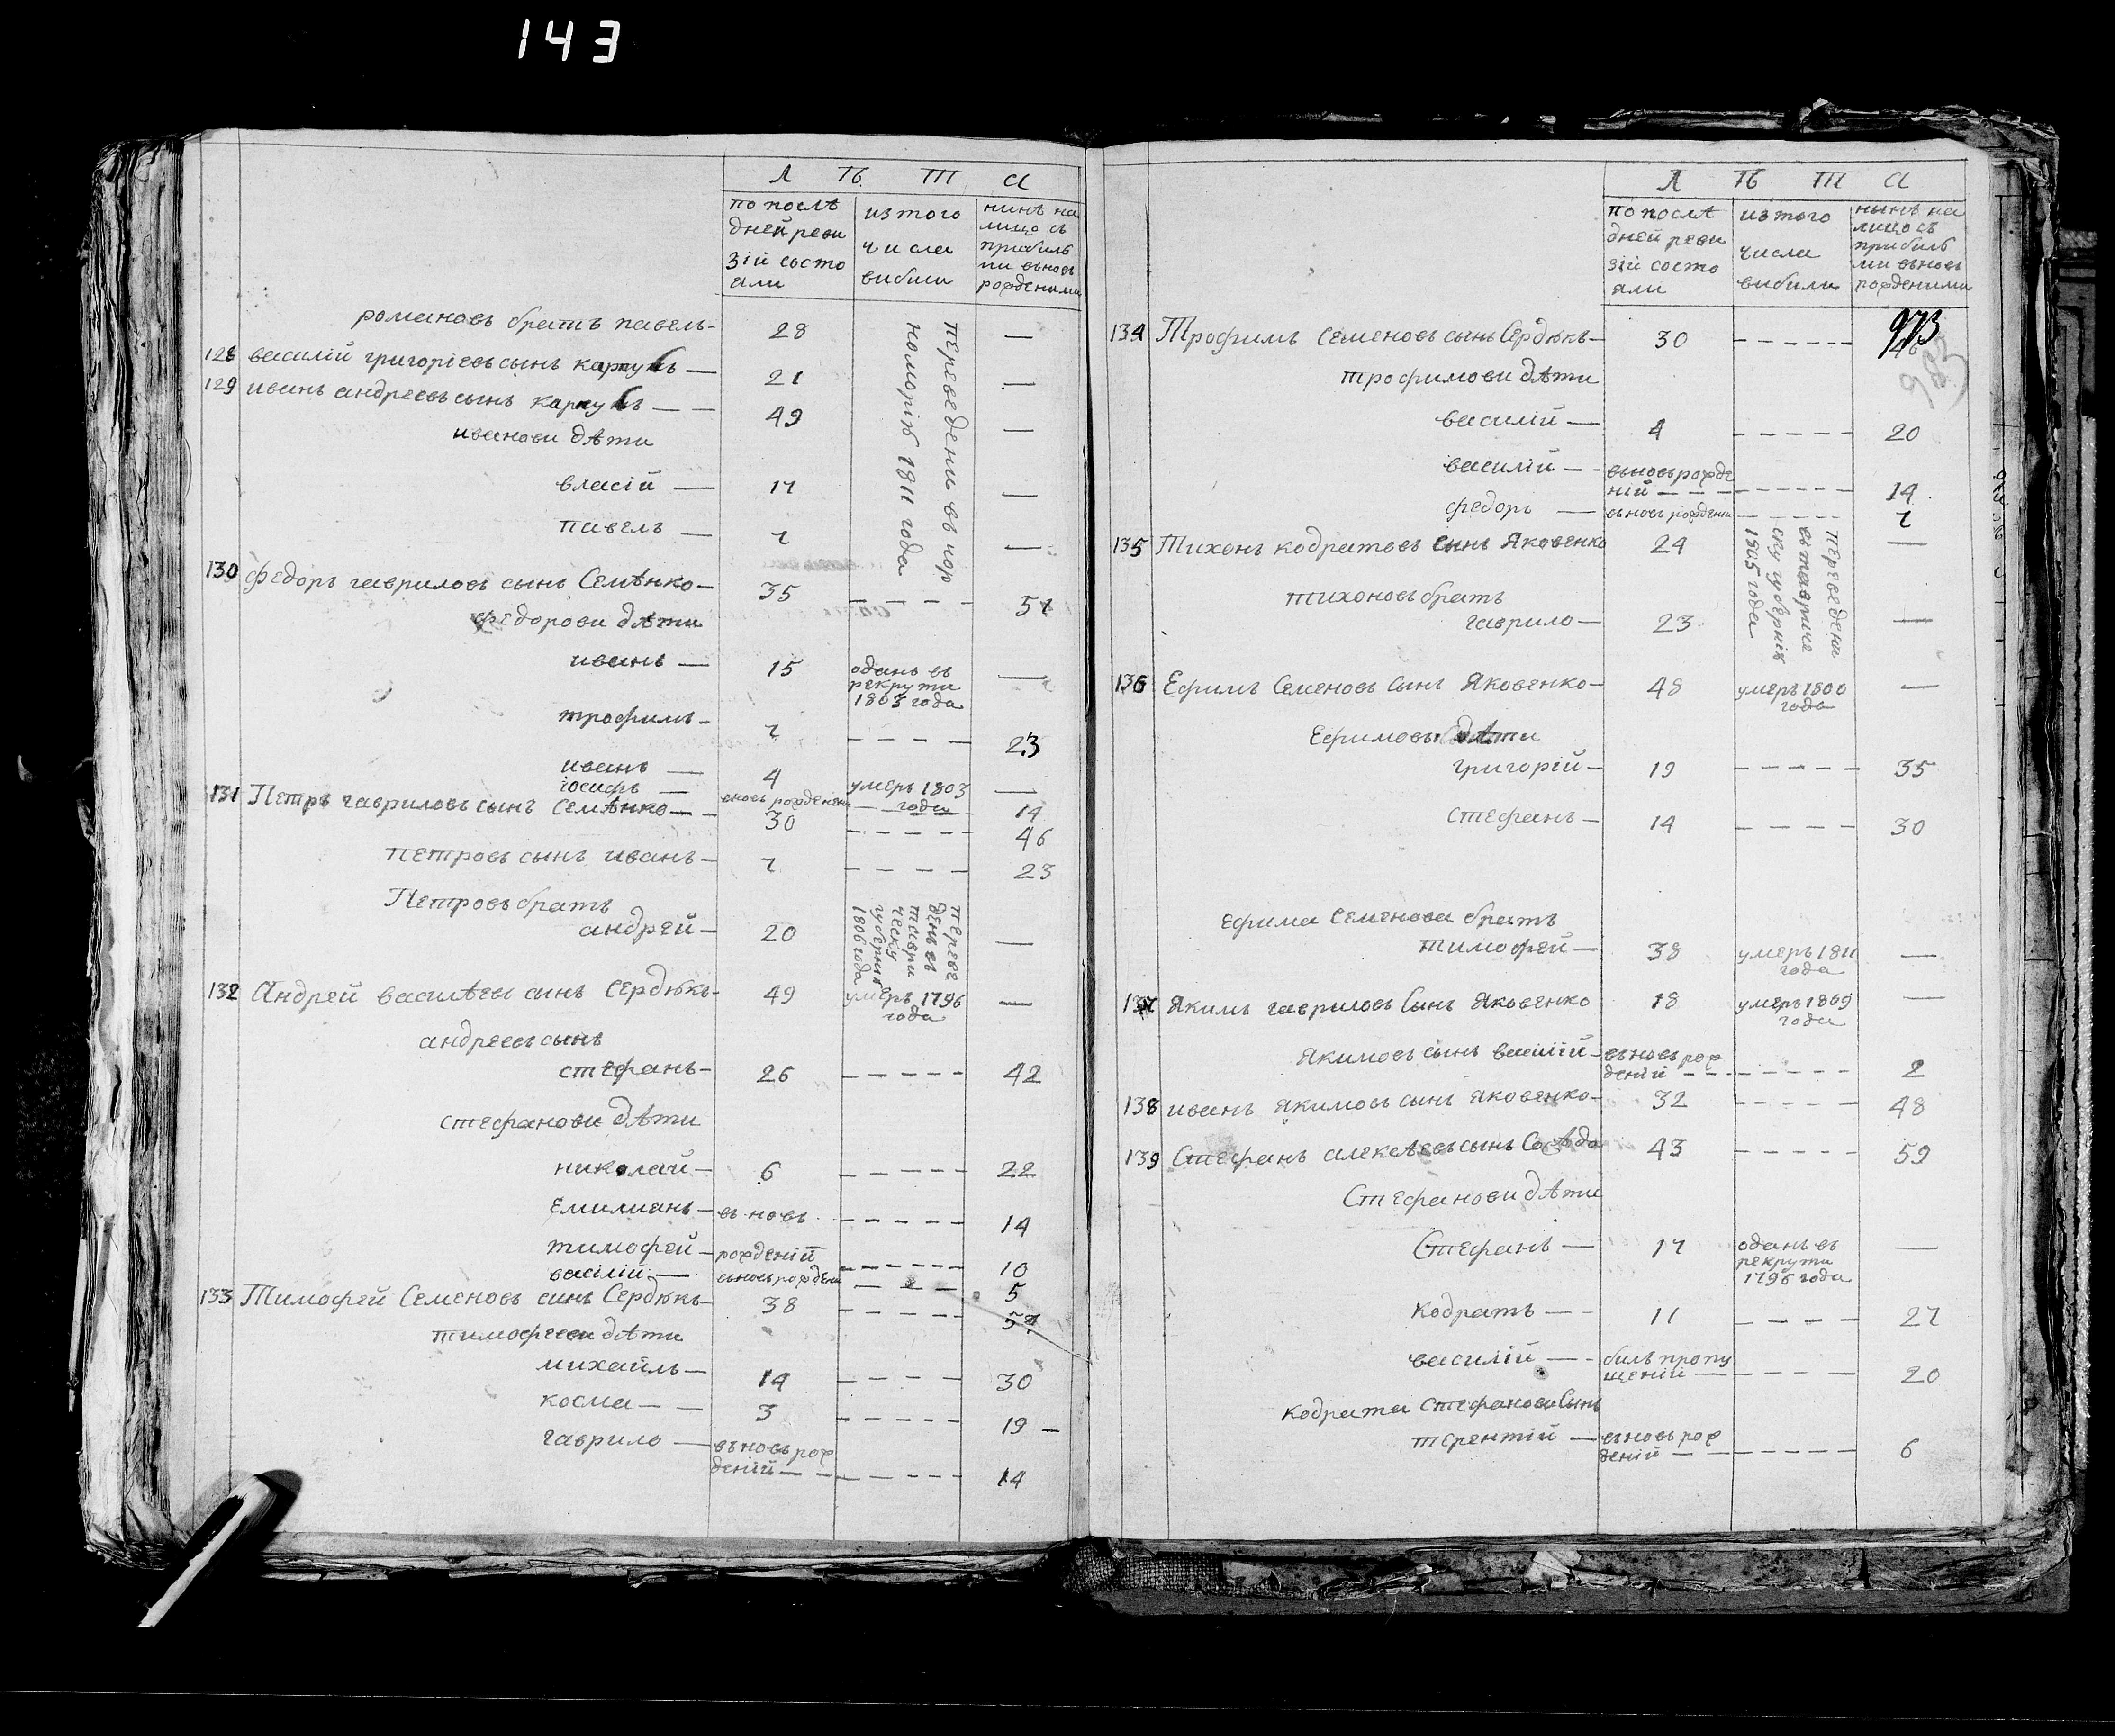 143
Л Ѣ Т А
по послѣ
дней реви
зій состо
яли
изтого
числа
вибили
нинѣ на
лицо съ
прибиль
ми вьновь
рожденими
романовъ братъ павелъ- 28 —
переведени въ чор
номорію 1811 года
128 василій григоріевъ сынъ — 21 —
129 иванъ андреевъ сынъ — — 49 —
иванови дѣти
власій — 17 —
павелъ — 7 —
130 федоръ гавриловъ сынъ Семѣнко- 35 - - - - 51
федорови дѣти
иванъ — 15 одань въ —
рекрути
1803 года
трофимъ- 7 - - - - 23
иванъ — 4 умеръ 1803 —
года
іосифъ — вновь рождени — 14
131 Петръ гавриловъ сынъ Семѣнко — - 30 - - - - 46
петровъ сынъ иванъ- 7 - - - - 23
Петровъ братъ
андрей- 20 —
переве
денъ въ
таври
ческу
губернію
1806 года
132 Андрей василѣевъ сынъ Сердюкъ- 49 умеръ 1796 —
года
андреевъ сынъ
стефанъ- 26 - - - - - 42
стефанови дѣти
николай- 6 - - - - - 22
Емилианъ- вь новь - - - - - 14
тимофей- рожденій - - - - - 10
василій- — вьновь рождени — - — 5
133 Тимофей Семеновъ синъ Сердюкъ- 38 - - - - - 54
тимофееви дѣти
михайлъ- 14 - - - - 30
косма - - 3 - - - - - 19 -
гаврило — вьновь рож
деній — - - - - - - 14
Л Ѣ Т А
по послѣ
дней реви
зій состо
яли
изтого
числа
вибили
нынѣ на
лицо съ
прибиль
ми вьновь
рожденими
973
983
134 Трофимъ Семеновъ сынъ Сердюкъ- 30 - - - - - 46
трофимови дѣти
василій — 4 - - - - - 20
василій - - вьновь рожде
ній - - - - - - - - - 14
федоръ — вьновь рождени - - - - 7
135 Тихонъ кодратовъ сынъ Яковенко 24 —
переведени
въ тавриче
ску губернію
1805 года
тихоновъ братъ
гаврило- 23 —
136 Ефимъ Семеновъ Сынъ Яковенко- 48 умеръ 1800 —
года
Ефимовы дѣти
григорій- 19 - - - - - 35
стефанъ- 14 - - - - 30
Ефима Семенова братъ
тимофей- 38 умеръ 1811 —
года
137 Якимъ гавриловъ Сынъ Яковенко 18 умеръ 1809 —
года
Якимовъ сынъ василій- вьновь рож
деній - - - - - - - - 2
138 иванъ якимовъ сынъ яковенко- 32 - - - - 48
139 Стефанъ алексѣевъ сынъ Сосѣда 43 - - - - - 59
Стефанови дѣти
Стефанъ — 17 оданъ въ —
рекрути
1796 года
кодратъ - - 11 - - - - 27
василій - - билъ пропу
щеній — - - - - - 20
кодрата Стефанова Сынъ
терентій - вьновь рож
деній - - - - - - - 6